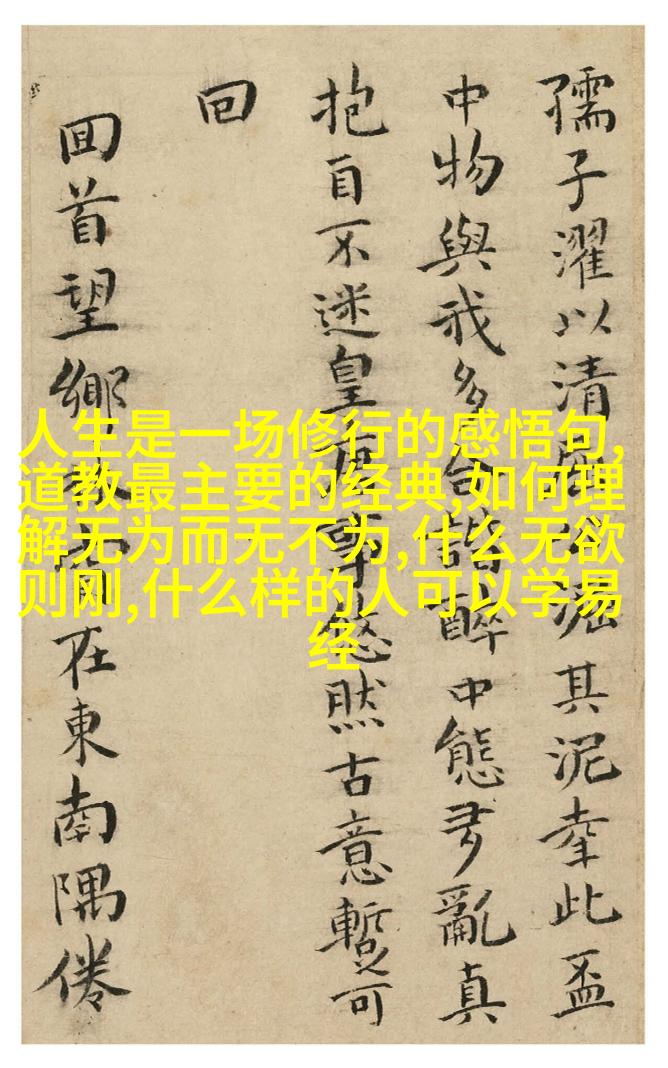 人生是一场修行的感悟句,
道教最主要的经典,如何理
解无为而无不为,什么无欲
则刚,什么样的人可以学易
经
孺子濯以清其泥舉此盃
中物與我多諧醉中態亂真
抱自不迷皇然古意暫可
回
囬首望鄉在東南隅倦